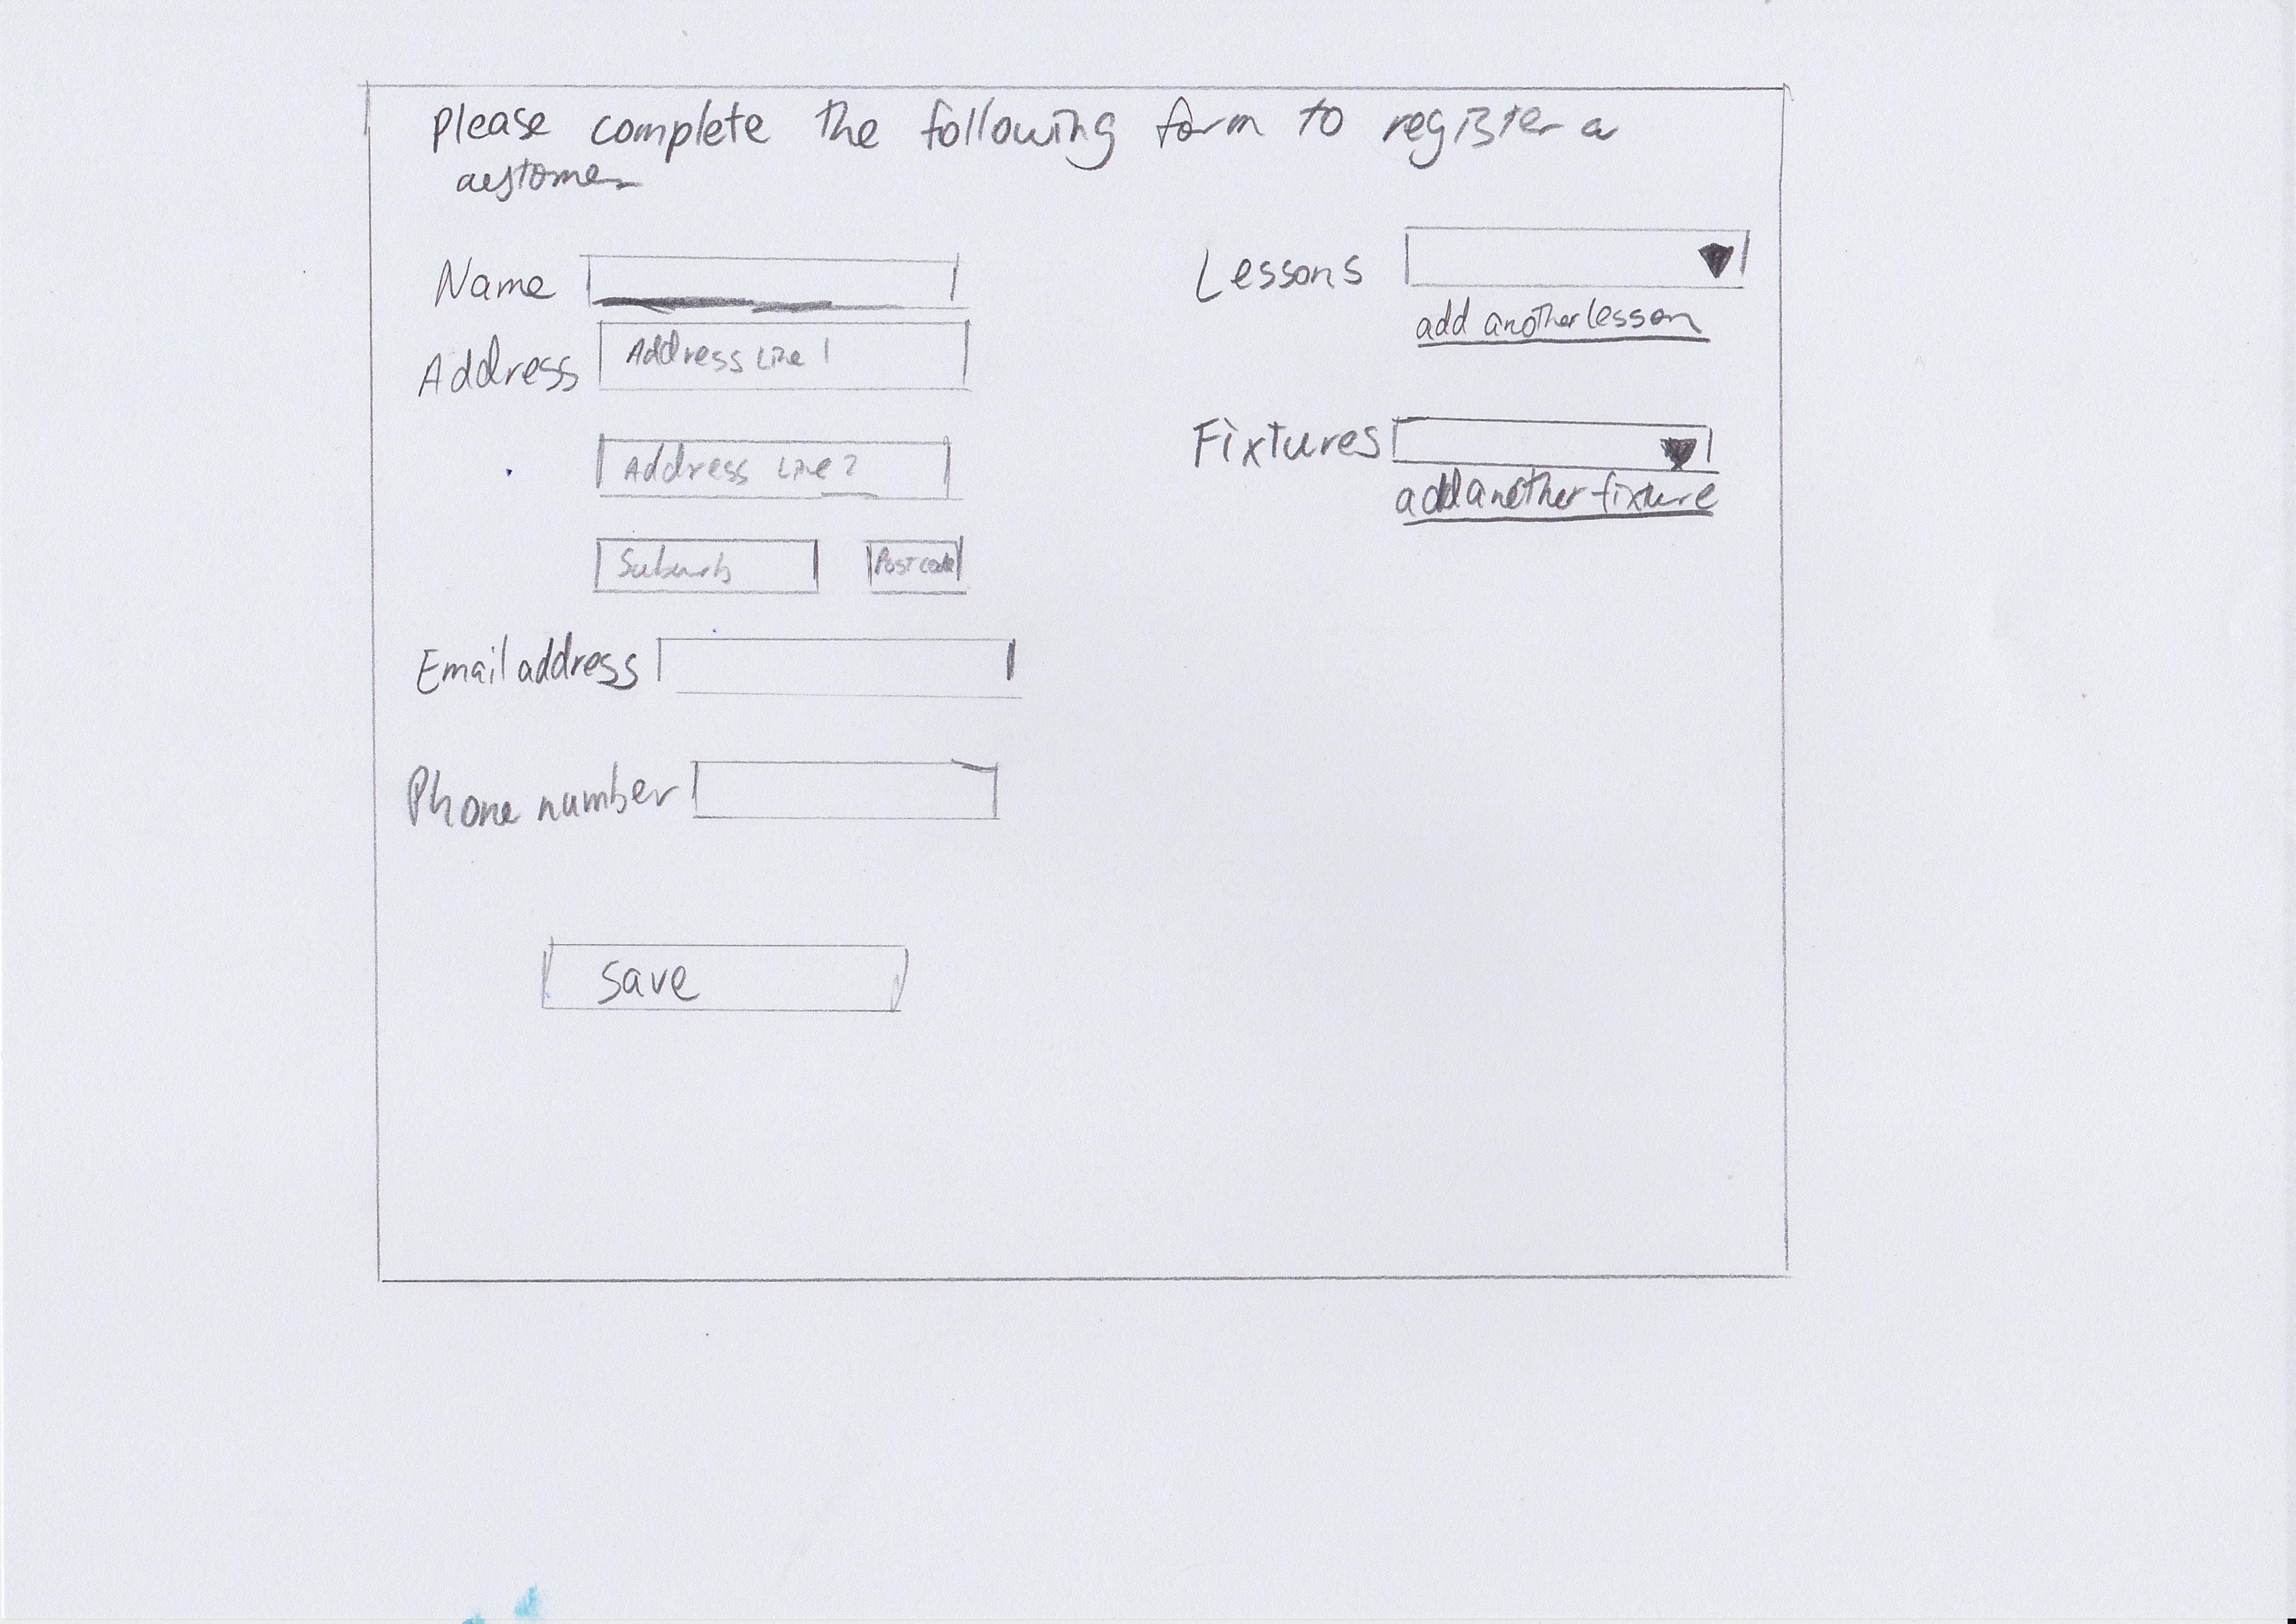 Please complete the following form to register a
customer
Name
Address
Address Line 1
Address Line 2
Suburb
Post code
Email address
Phone number
Save
Lessons
add another lesson
Fixtures
add another fixture